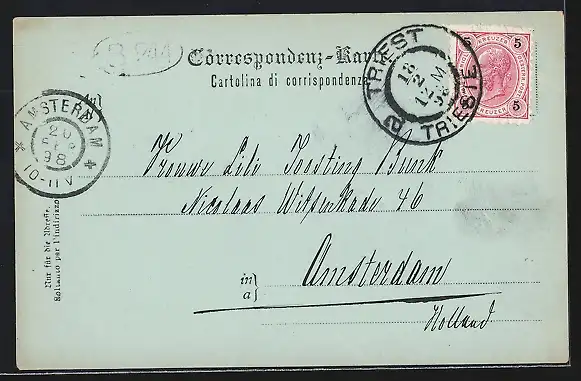 Correspondenz-Karte
Cartolina di corrispondenza
TRIEST
18
2
12 M
98
TRIESTE
a
KREUZER
5 5
5
KREUZER
AMSTERDAM
20
FEB
98
10-11V
An
a
Vrouwe Lili Joosting Bunk
Nicolaas Witsenkade 46
in
a
Amsterdam
Holland
Nur für die Adresse.
Soltanto per l'indirizzo